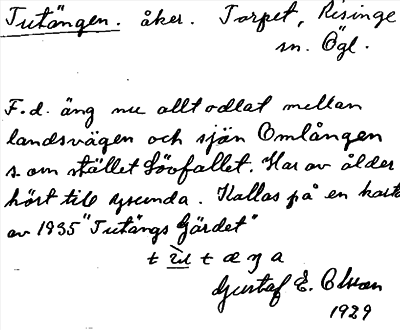 Tutängen. åker. Torpet, Risinge
sn. Ögl.
F.d. äng nu allt odlat mellan
landsvägen och sjön Omlången
som stället Lövfallet. Har av ålder
hört till Grunda. Kallas på en karta
av 1935 "Tutängs Gärdet"
Gustaf E. Olsson
1929